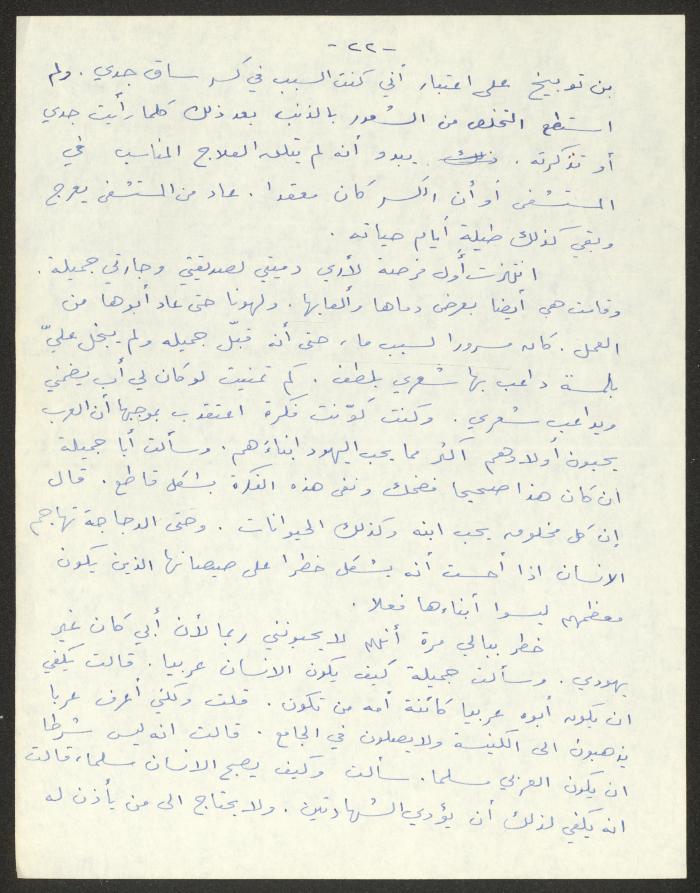 -٢٢-
من توبيخ على اعتبار أني كنت السبب في كسر ساق جدي. ولم
استطع التخلص من الشعور بالذنب بعد ذلك كلما رأيت جدي
أو تذكرته. يبدو أنه لم يتلق العلاج المناسب في
المستشفى أو أن الكسر كان معقدا. عاد من المستشفى يعرج
وبقي كذلك طيلة أيام حياته.
انتهزت أول فرصة لأري دميتي لصديقتي وجارتي جميلة.
وقامت هي أيضا بعرض دماها وألعابها. ولهونا حتى عاد أبوها من
العمل. كان مسرورا لسبب ما، حتى أنه قبّل جميله ولم يبخل عليّ
بلمسة داعب بها شعري بلطف. كم تمنيت لو كان لي أب يضمني
ويداعب شعري. وكنت كوّنت فكرة اعتقدت بموجبها أن العرب
يحبون أولادهم أكثر مما يحب اليهود ابناءهم. وسألت أبا جميلة
ان كان هذا صحيحا فضحك ونفى هذه الفكرة بشكل قاطع. قال
إن كل مخلوق يحب ابنه وكذلك الحيوانات. وحتى الدجاجة تهاجم
الانسان اذا أحست أنه يشكل خطرا على صيصانها الذين يكون
معظمهم ليسوا أبناءها فعلا.
خطر ببالي مرة أنهم لا يحبونني ربما لأن أبي كان غير
يهودي. وسألت جميلة كيف يكون الانسان عربيا. قالت يكفي
ان يكون أبوه عربيا كائنة أمه من تكون. قلت ولكني أعرف عربا
يذهبون الى الكنيسة ولا يصلون في الجامع. قالت انه ليس شرطا
ان يكون العربي مسلما. سألت وكيف يصبح الانسان مسلما، قالت
انه يكفي لذلك أن يؤدي الشهادتين. ولا يحتاج الى من يأذن له